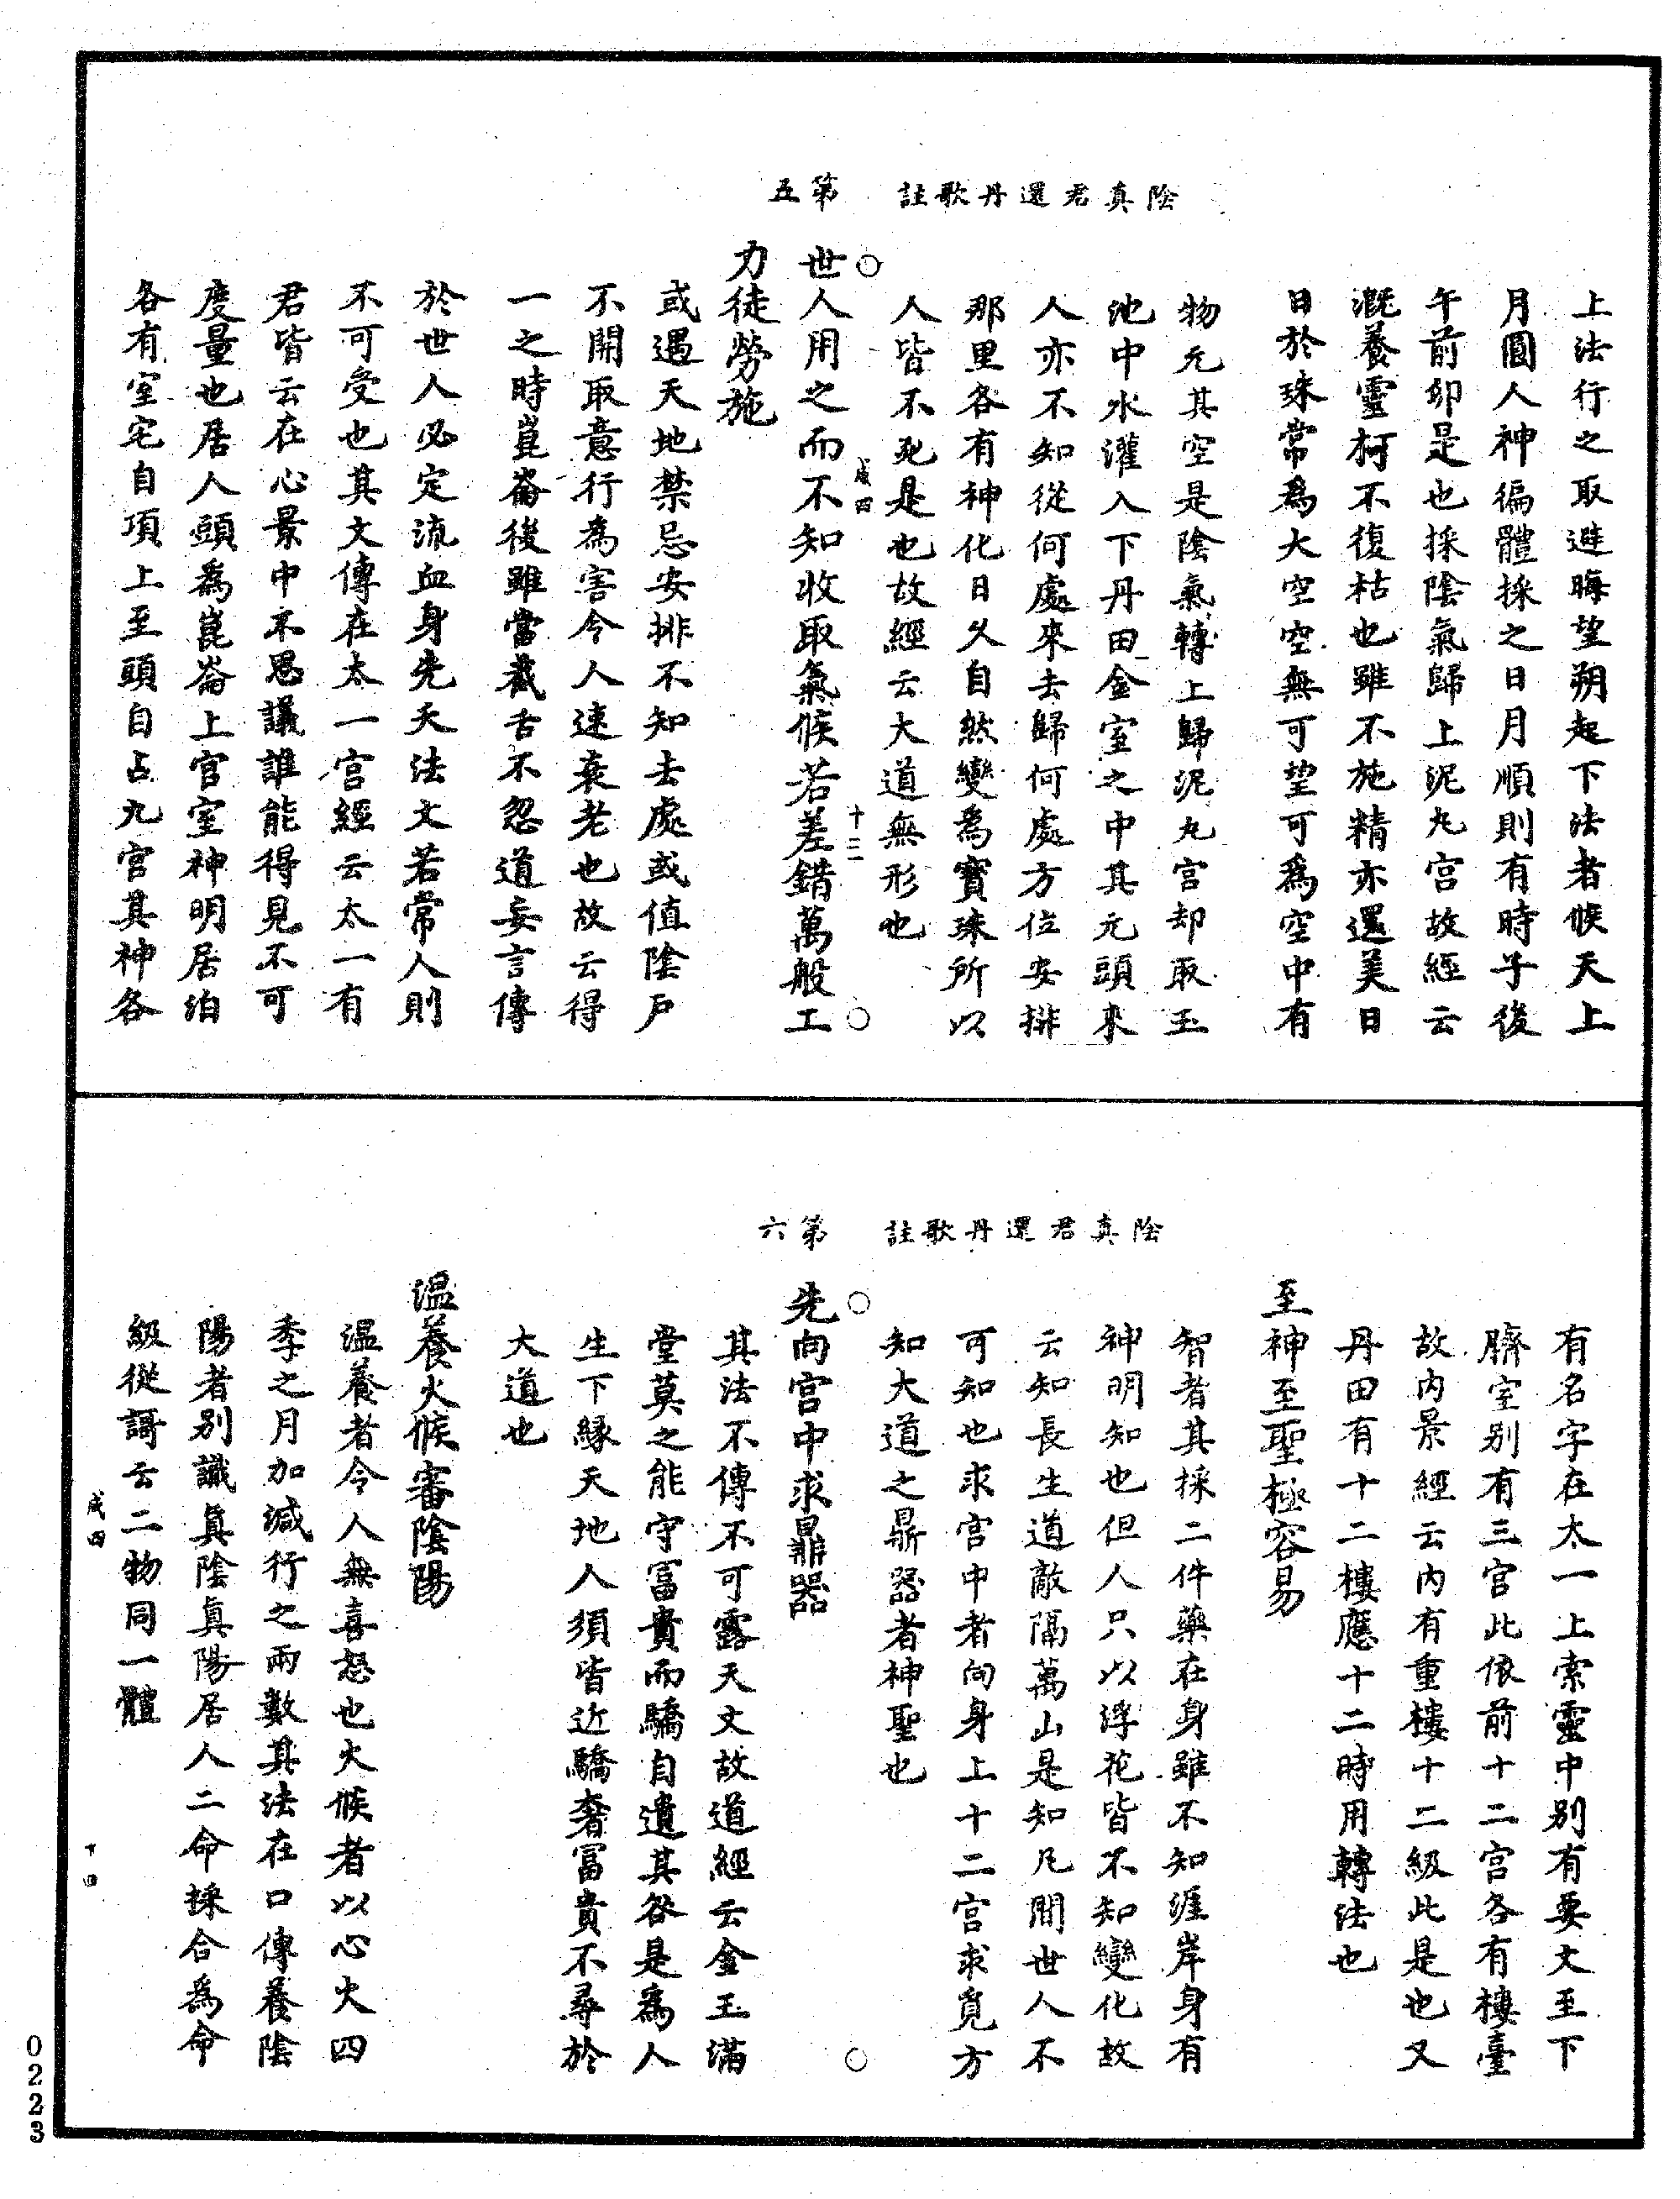 陰真君還丹歌註　第五
上法行之取避晦望朔起下法者候天上
月圓人神徧體採之日月順則有時子後
午前卯是也採陰氣歸上泥丸宮故經云
溉養靈柯不復枯也雖不施精亦還美日
日於珠常爲大空空無可望可爲空中有
物元其空是陰氣轉上歸泥丸宮却取玉
池中水灌入下丹田金室之中其元頭來
人亦不知從何處來去歸何處方位安排
那里各有神化日久自然變爲寶珠所以
人皆不死是也故經云大道無形也
咸四　十三
世人用之而不知收取氣候若差錯萬般工
力徒勞施
或遇天地禁忌安排不知去處或值陰戶
不開取意行為害令人速衰老也故云得
一之時崑崙後雖當截舌不忽道妄言傳
於世人必定流血身先天法文若常人則
不可受也其文傳在太一宮經云太一有
君皆云在心景中不思議誰能得見不可
度量也居人頭爲崑崙上官室神明居泊
各有室宅自項上至頭自占九宮其神各
陰真君還丹歌註　第六
有名字在太一上索靈中别有要文至下
臍室别有三宮此依前十二宮各有樓臺
故内景經云内有重樓十二級此是也又
丹田有十二樓應十二時用轉法也
至神至聖極容易
智者其採二件藥在身雖不知涯岸身有
神明知也但人只以浮花皆不知變化故
云知長生道敵隔萬山是知凡間世人不
可知也求宮中者向身上十二宮求覓方
知大道之鼎器者神聖也
先向宮中求鼎器
其法不傳不可露天文故道經云金玉滿
堂莫之能守富貴而驕自遺其咎是為人
生下緣天地人須皆近驕奢富貴不尋於
大道也
温養火候審陰陽
温養者令人無喜怒也火候者以心火四
季之月加減行之兩數其法在口傳養陰
陽者别識真陰真陽居人二命採合為命
級從謌云二物同一體
咸四　十四
0223